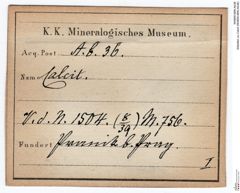 K. K. Mineralogisches Museum.
Acq. Post A. E. 36.
Nam Calcit.
V. d. N. 1504. (8/39) M. 756.
Fundort b. Prag
I